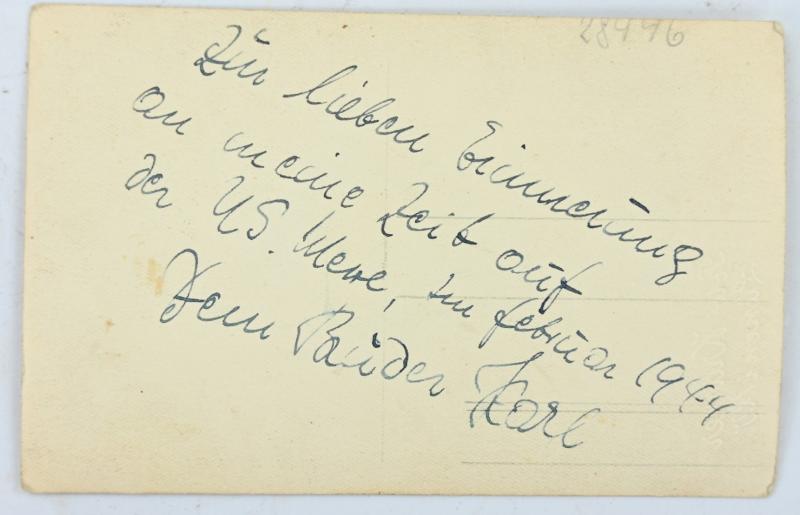 Zur lieben Erinnerung
an meine Zeit auf
der US. Mewe, im Februar 1944
Dein Bruder Karl